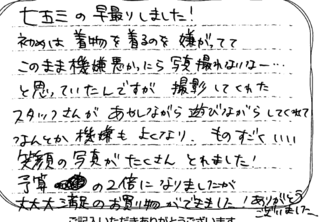 七五三の早撮りしました!
初めは着物を着るのを嫌がってて
このまま機嫌悪かったら写真撮れないなー…
と思っていたんですが 撮影してくれた
スタッフさんが あやしながら遊びながらしてくれて
なんとか 機嫌もよくなり、ものすごくいい
笑顔の写真がたくさん とれました!
予算 の2倍になりましたが
大大大満足のお買い物ができました!ありがとう
ございました
ご記入いただきありがとうございます